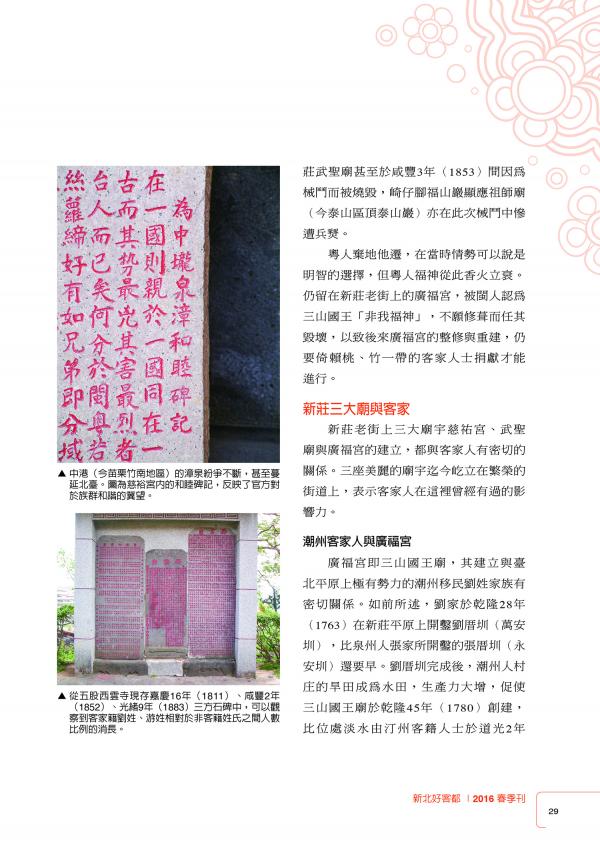 為中壠泉漳和睦碑記
在一國則親於一國同在一
古而其势最兇其害最烈者
台人而已矣何分於閩粤若
絲蘿締好有如兄弟即分域
▲ 中港（今苗栗竹南地區）的漳泉紛爭不斷，甚至蔓
延北臺。圖為慈裕宮內的和睦碑記，反映了官方對
於族群和諧的冀望。
▲ 從五股西雲寺現存嘉慶16年（1811）、咸豐2年
（1852）、光緒9年（1883）三方石碑中，可以觀
察到客家籍劉姓、游姓相對於非客籍姓氏之間人數
比例的消長。
莊武聖廟甚至於咸豐3年（1853）間因為
械鬥而被燒毀，崎仔腳福山巖顯應祖師廟
（今泰山區頂泰山巖）亦在此次械鬥中慘
遭兵燹。
粵人棄地他遷，在當時情勢可以說是
明智的選擇，但粵人福神從此香火立衰。
仍留在新莊老街上的廣福宮，被閩人認為
三山國王「非我福神」，不願修葺而任其
毀壞，以致後來廣福宮的整修與重建，仍
要倚賴桃、竹一帶的客家人士捐獻才能
進行。
新莊三大廟與客家
新莊老街上三大廟宇慈祐宮、武聖
廟與廣福宮的建立，都與客家人有密切的
關係。三座美麗的廟宇迄今屹立在繁榮的
街道上，表示客家人在這裡曾經有過的影
響力。
潮州客家人與廣福宮
廣福宮即三山國王廟，其建立與臺
北平原上極有勢力的潮州移民劉姓家族有
密切關係。如前所述，劉家於乾隆28年
（1763）在新莊平原上開鑿劉厝圳（萬安
圳），比泉州人張家所開鑿的張厝圳（永
安圳）還要早。劉厝圳完成後，潮州人村
庄的旱田成為水田，生產力大增，促使
三山國王廟於乾隆45年（1780）創建，
比位處淡水由汀州客籍人士於道光2年
新北好客都 | 2016 春季刊
29